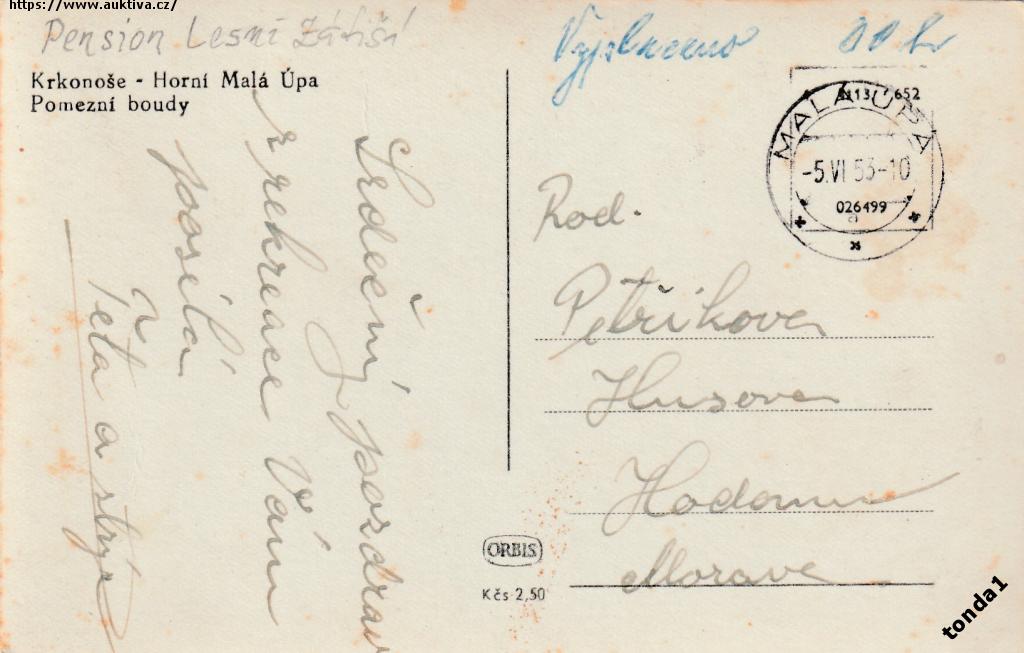 https://www.auktiva.cz/
Pension Lesní Zátiší
Krkonoše - Horní Malá Úpa
Pomezní boudy
Srdečný pozdrav
z rekreace Vám
posílá
Teta a strýc
Vyplaceno
MALÁ ÚPA
-5.VI 53-10
026499
Rod.
Petříkova
Husova
Morava
ORBIS
Kčs 2,50
tonda1